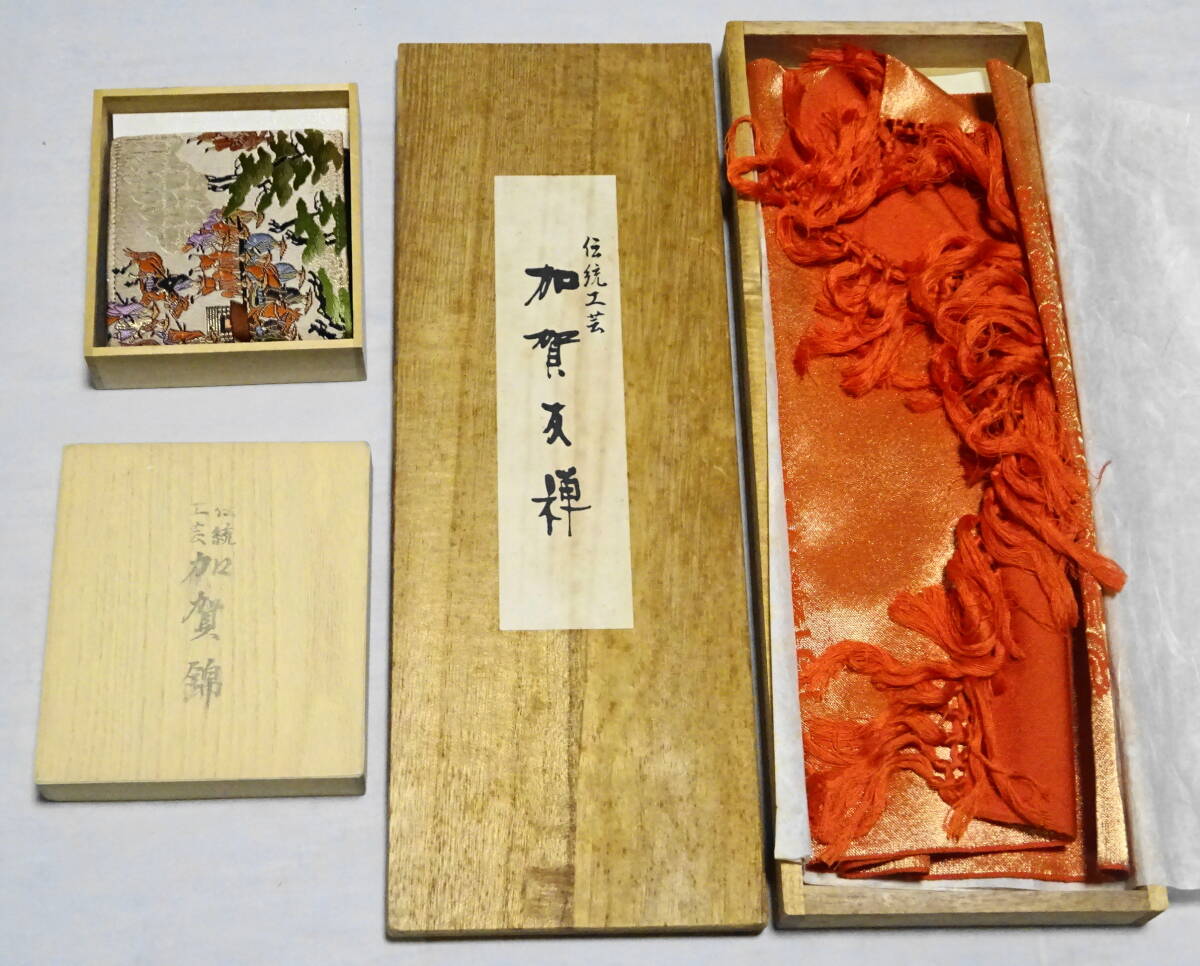 伝統工芸
加賀友禅
伝統
工芸
加賀錦